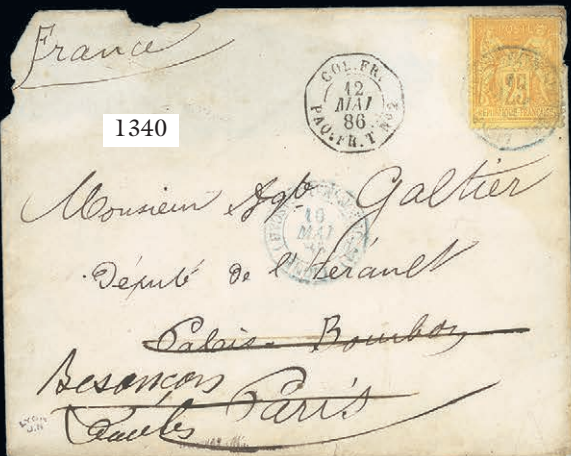 France
COL. FR.
12
MAI
86
PAQ. FR. T No 2
25
1340
Monsieur Agte Galtier
10
MAI
Député de l'Hérault
Palais-Bourbon
Besançon
Paris
Doubs
LYON